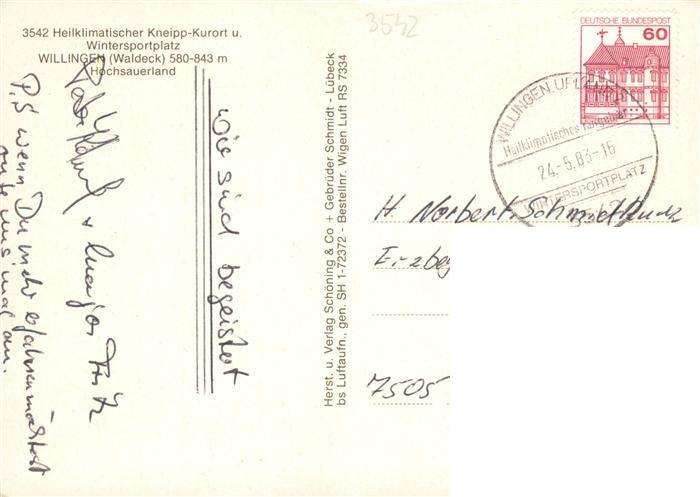 3542 Heilklimatischer Kneipp-Kurort u.
Wintersportplatz
WILLINGEN (Waldeck) 580-843 m
Hochsauerland
3542
DEUTSCHE BUNDESPOST
60
WILLINGEN, UPLAND
Heilklimatisches
24.-5.83-16
WINTERSPORTPLATZ
wir sind begeistert
Fritz
P.S wenn Du mehr erfahren möchtest
rufe uns mal an.
Herst. u. Verlag Schöning & Co + Gebrüder Schmidt - Lübeck
bs Luftaufn., gen. SH 1-72372 - Bestellnr. Wigen Luft RS 7334
H. Norbert Schmidthuck
Erzbeg
7505